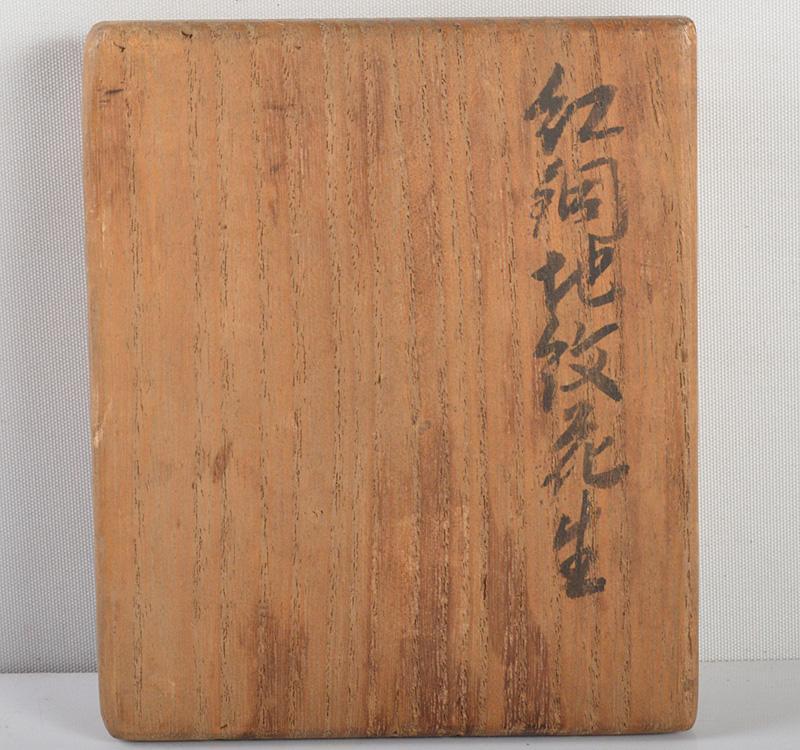 紅銅地紋花生